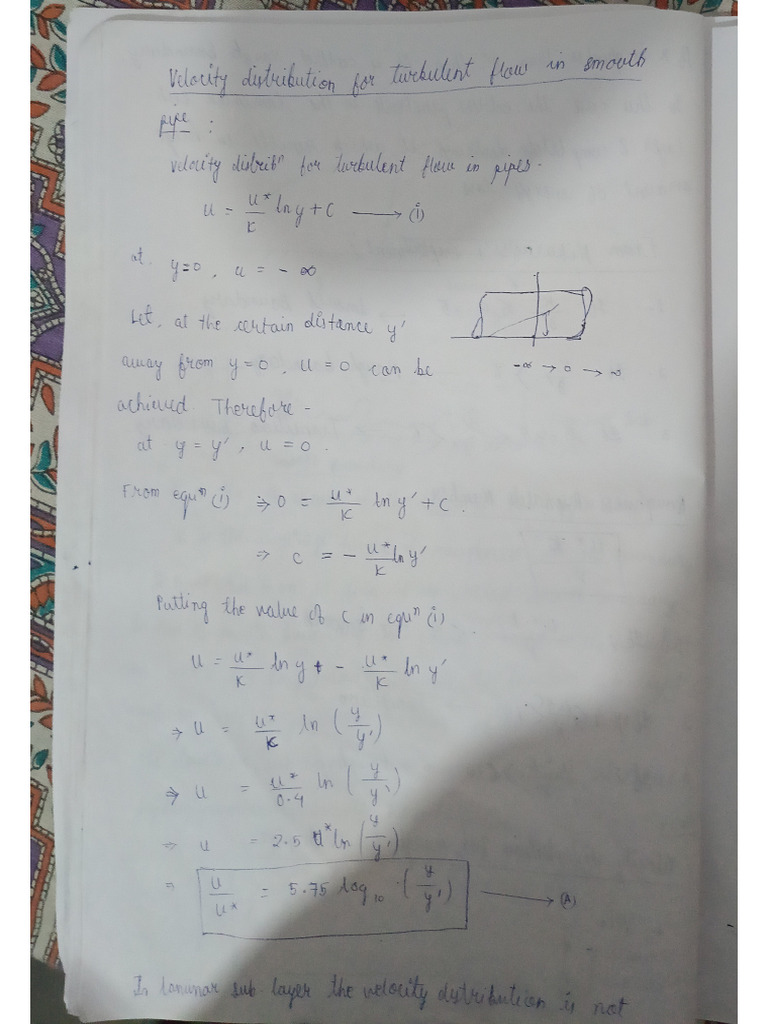 Velocity distribution for turbulent flow in smooth
pipe :
Velocity distribⁿ for turbulent flow in pipes.
u = u*/K ln y + C ⟶ (i)
at y=0, u = - ∞
Let, at the certain distance y'
away from y=0, u=0 can be
-∞ → 0 → ∞
achieved Therefore -
at y = y', u = 0.
From equⁿ (i) ⇒ 0 = u*/K ln y' + C.
⇒ C = - u*/K ln y'
Putting the value of C in equⁿ (i)
u = u*/K ln y - u*/K ln y'
⇒ u = u*/K ln (y/y')
⇒ u = u*/0.4 ln (y/y')
⇒ u = 2.5 u* ln (y/y')
⇒ u/u* = 5.75 log₁₀ (y/y') ⟶ (A)
In lanunar sub-layer the velocity distribution is not